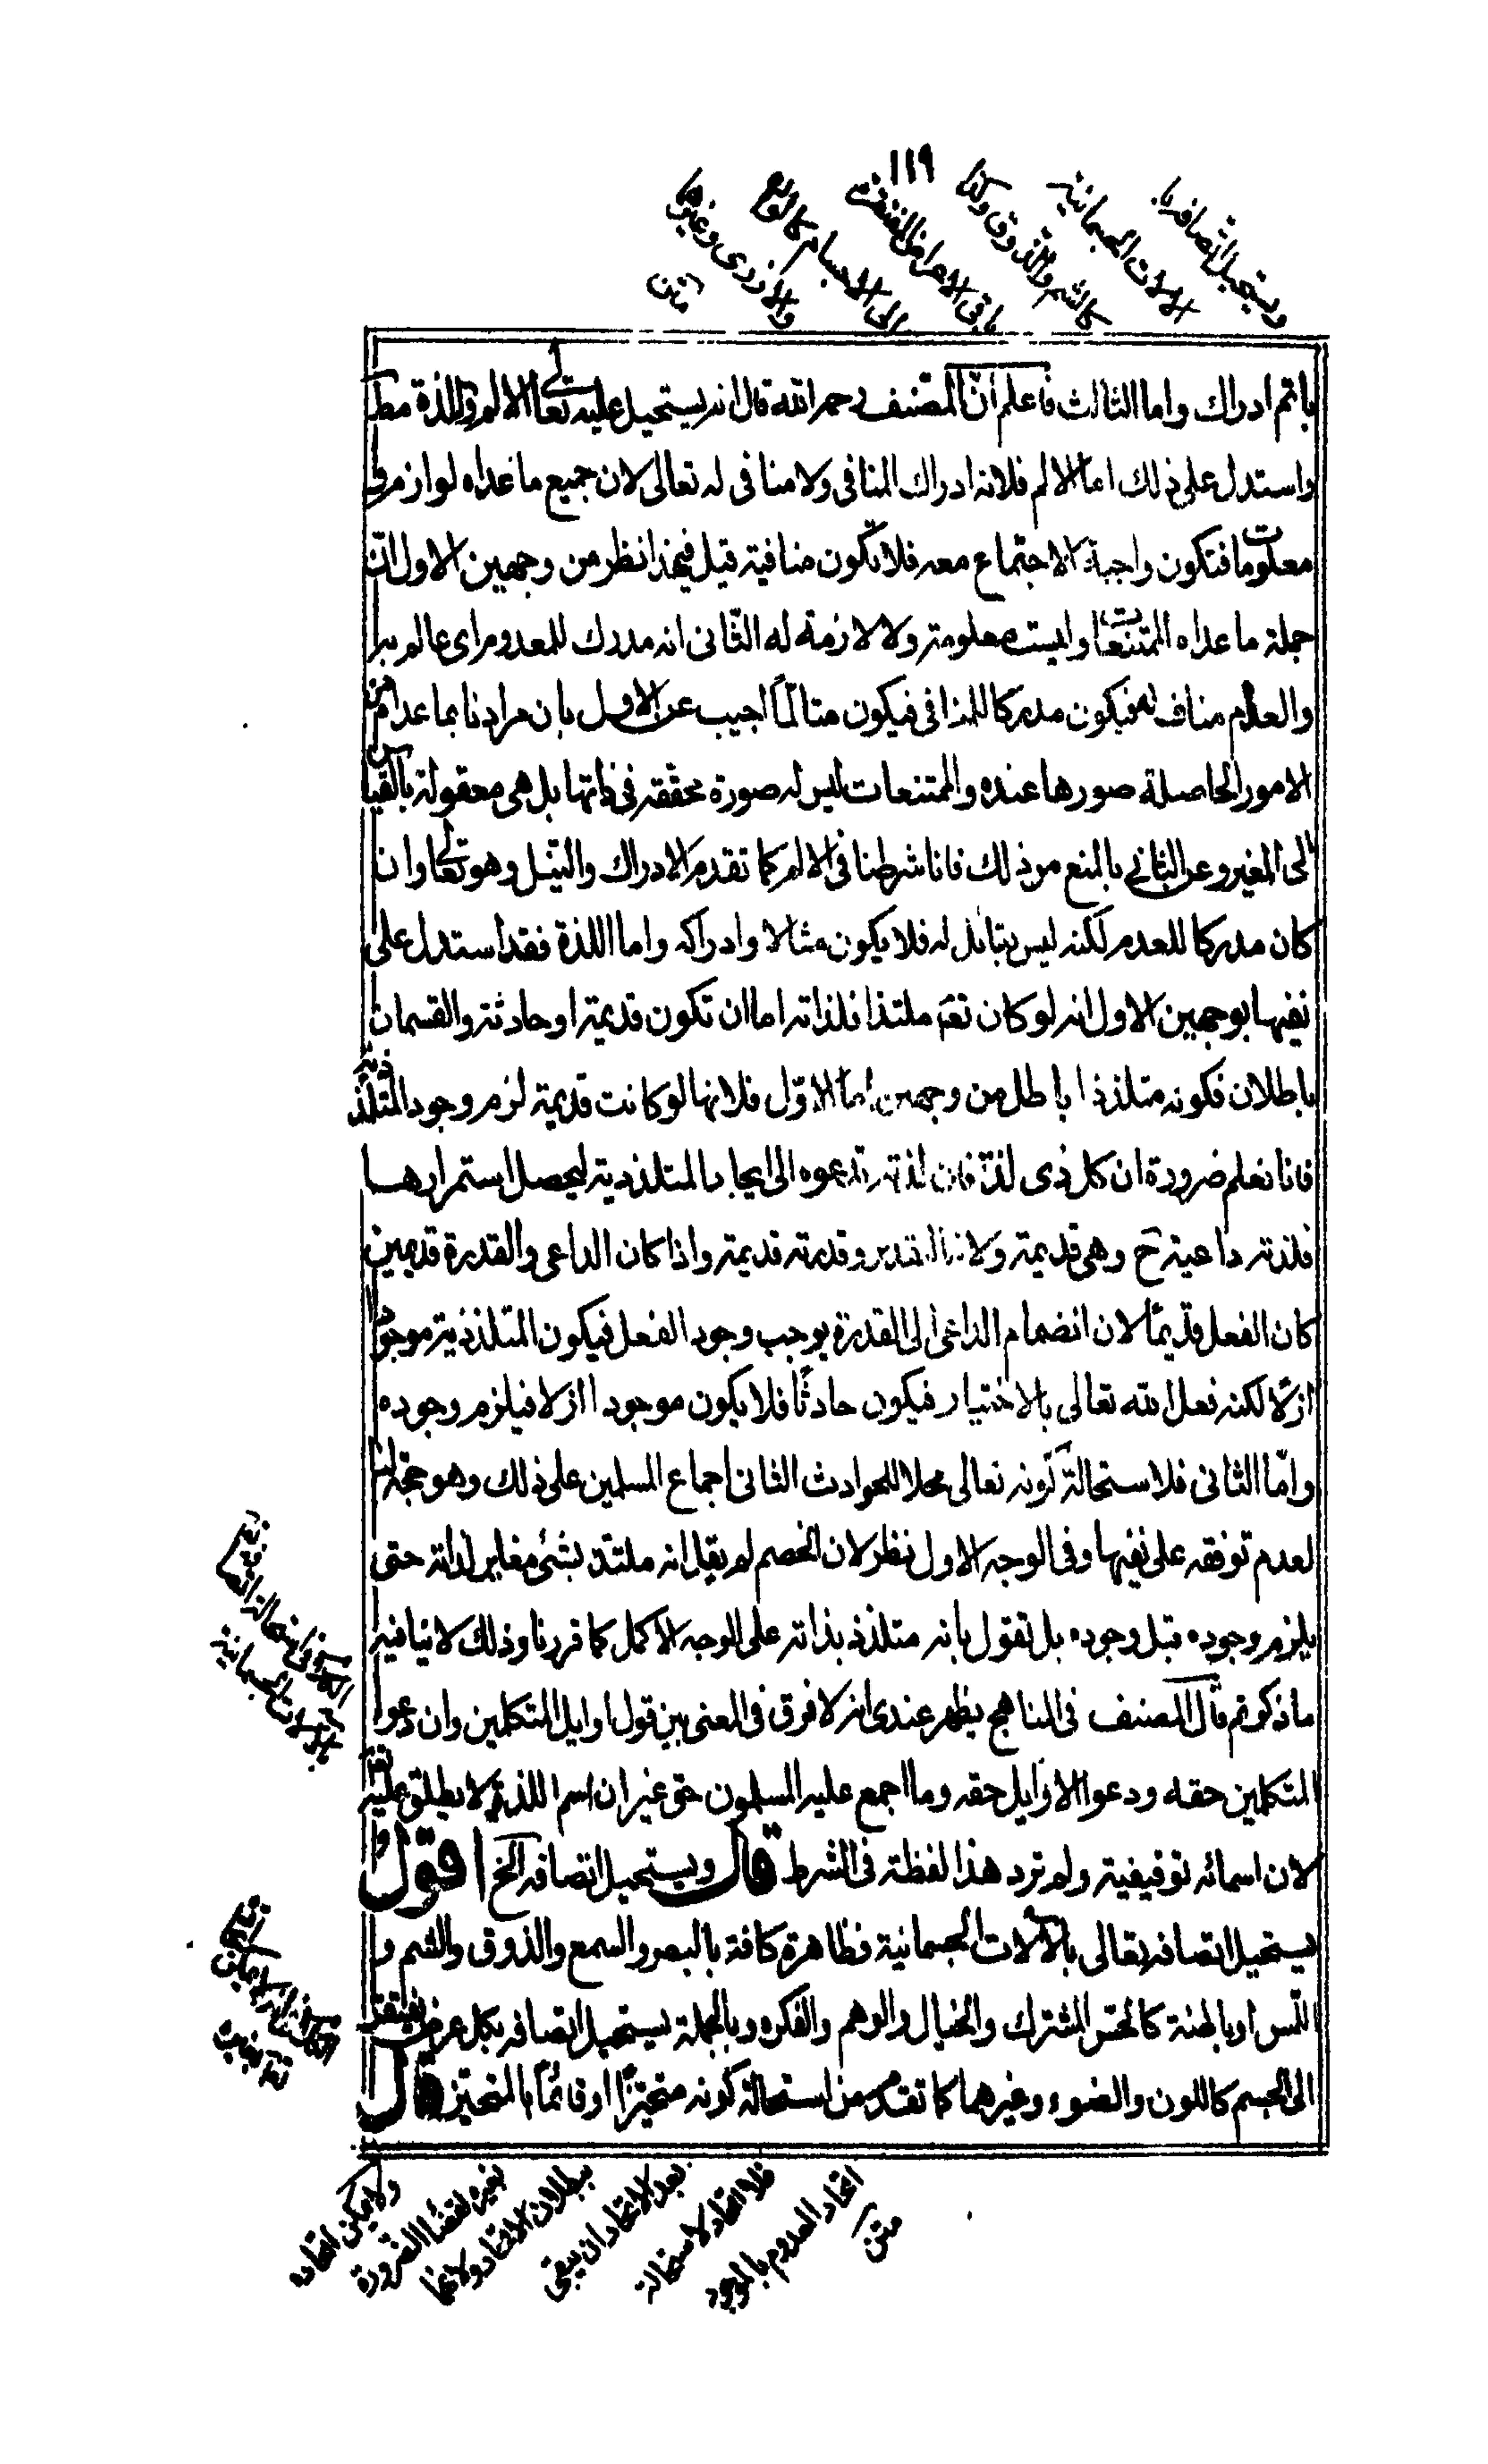 ١١٩
ويستحيل اتصافه با
لالات الجسمانية
كالشم والذوق وكذا
باقي الاعراض المفتقرة
الى الاجسام كالروايح
والازدى وغيرها
متن
باتم ادراك واما الثالث فاعلم انّ المصنف رحمه الله قال انه يستحيل عليه تعالى الالم واللذة مط
واستدل على ذلك اما الالم فلانه ادراك المنافى ولا منافى له تعالى لان جميع ما عداه لوازمه
معلومات فتكون واجبة الاجتماع معه فلا تكون منافية قيل فيهذا نظر من وجهين الاول انّ
جملة ما عداه الممتنعات وليست معلومة ولا لازمة له الثانى انه مدرك للمعدوم اى عالم به
والعدم مناف له فيكون مدركا للمنافى فيكون متالمًا اجيب عن الاول بان مرادنا بما عداه من
الامور الحاصلة صورها عنده والممتنعات ليس له صورة محققه فى ذاتها بل هى معقولة بالقياس
الى الغير وعن الثانى بالمنع من ذلك فانا شرطنا فى الالم كما تقدم الادراك والنيل وهو تعالى وان
كان مدركا للعدم لكنه ليس بنائل له فلا يكون مثالا وادراكه واما اللذة فقد استدل على
نفيها بوجهين الاول انه لو كان تعم ملتذا فلذاته اما ان تكون قديمة او حادثة والقسمان
باطلان فكونه متلذذا باطل من وجهين اما الاوّل فلانها لو كانت قديمة لزم وجود المتلذذ به
فانا نعلم ضرورة ان كل ذى لذة فان لذته تدعوه الى ايجاد المتلذذ به ليحصل استمرارها
فلذته داعية ح وهى قديمة ولانه القدير وقدرته قديمة واذا كان الداعى والقدرة قديمين
كان الفعل قديمًا لان انضمام الداعى الى القدرة يوجب وجود الفعل فيكون المتلذذ به موجودًا
ازلًا لكنه فعل الله تعالى بالاختيار فيكون حادثًا فلا يكون موجودا ازلا فيلزم وجوده
وامّا الثانى فلاستحالة كونه تعالى محلا للحوادث الثانى اجماع المسلمين على ذلك وهو حجة هنا
لعدم توقفه على نفيها وفى الوجه الاول نظر لان الخصم لم يقل انه ملتذ بشئ مغاير لذاته حتى
يلزم وجوده قبل وجوده بل تقول بانه متلذذ بذاته على الوجه الاكمل كما قررنا وذلك لا ينافيه
ما ذكرتم قال المصنف فى المناهج يظهر عندى انه لا فرق فى المعنى بين قول اوايل المتكلمين وان دعوا
المتكلمين حقه ودعوا الاوايل حقه وما اجمع عليه المسلمون حق غير ان اسم اللذة لا يطلق عليه تعالى
لان اسمائه توقيفية ولم ترد هذا لفظة فى الشرط قال ويستحيل اتصافه الخ اقول
يستحيل اتصافه تعالى بالالات الجسمانية فظاهرة كافة بالبصر والسمع والذوق والشم و
اللمس او باطنة كالحس المشترك والخيال والوهم والفكره وبالجملة يستحيل اتصافه بكل عرض يفتقر
الى الجسم كاللون والضوء وغيرهما كما تقدم من استحالة كونه متحيزًا او قائمًا بالمتحيز قال
ولا يمكن اتحاده
بغيره لقضاء الضرورة
ببطلان الاتحاد ولانهما
بعد الاتحاد ان بقى
فلا اتحاد لاستحالة
اتحاد المعدوم بالموجود
متن